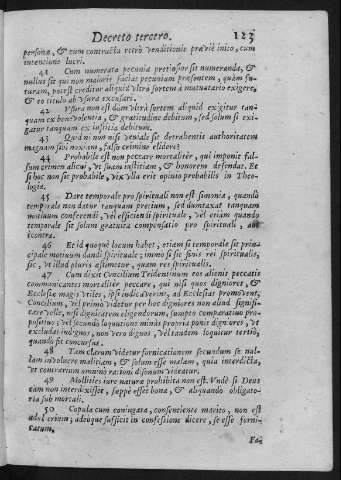 Decreto tercero. 123
persona, & cum contractu retro venditionis prævie inito, cum
intentione lucri.
41 Cum numerata pecunia pretiosior sit numeranda, &
nullus sit qui non maioris faciat pecuniam præsentem, quàm fu-
turam, potest creditor aliquid vltrà sortem à mutuatario exigere,
& eo titulo ab vsura excusari.
42 Vsura non est dum vltrà sortem aliquid exigitur tan-
quam ex benevolentia, & gratitudine debitum, sed solum si exi-
gatur tanquam ex iustitia debitum.
43 Quid ni non nisi veniale sit detrahentis authoritatem
magnam sibi noxiam, falso crimine elidere?
44 Probabile est non peccare mortaliter, qui imponit fal-
sum crimen alicui, vt suam iustitiam, & honorem defendat. Et
si hoc non sit probabile, vix vlla erit opinio probabilis in Theo-
logia.
45 Dare temporale pro spirituali non est simonia, quando
temporale non datur tanquam pretium, sed dumtaxat tanquam
motiuum conferendi, vel efficiendi spirituale, vel etiam quando
temporale sit solum gratuita compensatio pro spirituali, aut
è contra.
46 Et id quoque locum habet, etiam si temporale sit prin-
cipale motiuum dandi spirituale; immo si sit finis rei spiritualis,
sic, vt illud pluris æstimetur, quam res spiritualis.
47 Cum dixit Concilium Tridentinum eos alienis peccatis
communicantes mortaliter peccare, qui nisi quos digniores, &
Ecclesiæ magis vtiles, ipsi iudicaverint, ad Ecclesias promovent,
Concilium, vel primo videtur per hoc digniores non aliud signifi-
care velle, nisi dignitatem eligendorum, sumpto comparatiuo pro
positiuo; vel secundo loquutione minus propria ponit digniores, vt
excludat indignos, non vero dignos, vel tandem loquitur tertiò,
quando fit concursus.
48 Tam clarum videtur fornicationem secundum se nul-
lam involvere malitiam, & solum esse malam, quia interdicta,
vt contrarium omninò rationi dissonum videatur.
49 Mollities iure naturæ prohibita non est. Vnde si Deus
eam non interdixisset, sæpè esset bona, & aliquando obligato-
ria sub mortali.
50 Copula cum coniugata, consentiente marito, non est
adulterium; adeoque sufficit in confessione dicere, se esse forni-
catum.
Fa-